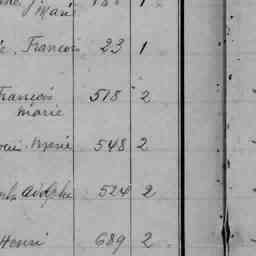 Marie
Francois 23 1
Francois 518 2
Marie
Marie 548 2
Adolphe 524 2
Henri 689 2